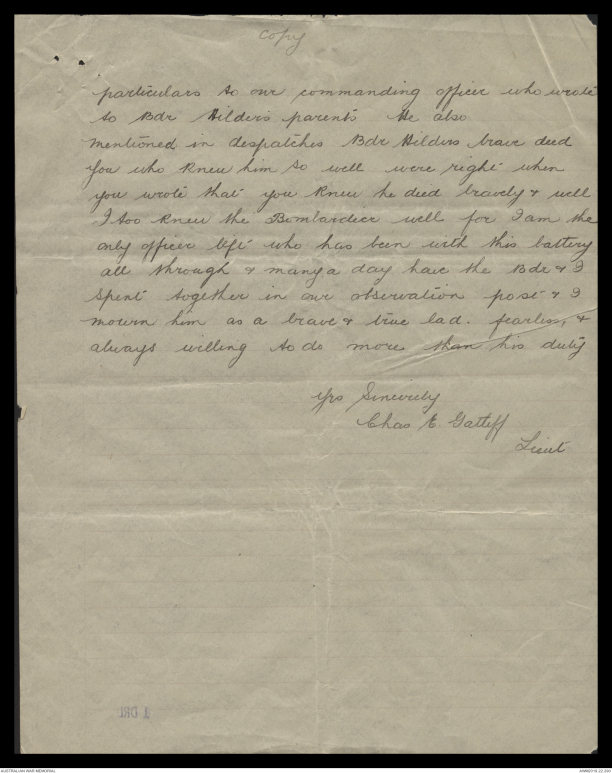 Copy
particulars to our commanding officer who wrote
to Bdr Hilder's parents He also
mentioned in despatches Bdr Hilders brave deed
You who knew him so well were right when
you wrote that you knew he died bravely & well
I too knew the Bombardier well for I am the
only officer left who has been with this battery
all through & many a day have the Bdr & I
spent together in our observation post & I
mourn him as a brave & true lad. fearless, &
always willing to do more than his duty
Yrs Sincerely
Chas E. Gatliff
Lieut
1 DRL
AUSTRALIAN WAR MEMORIAL